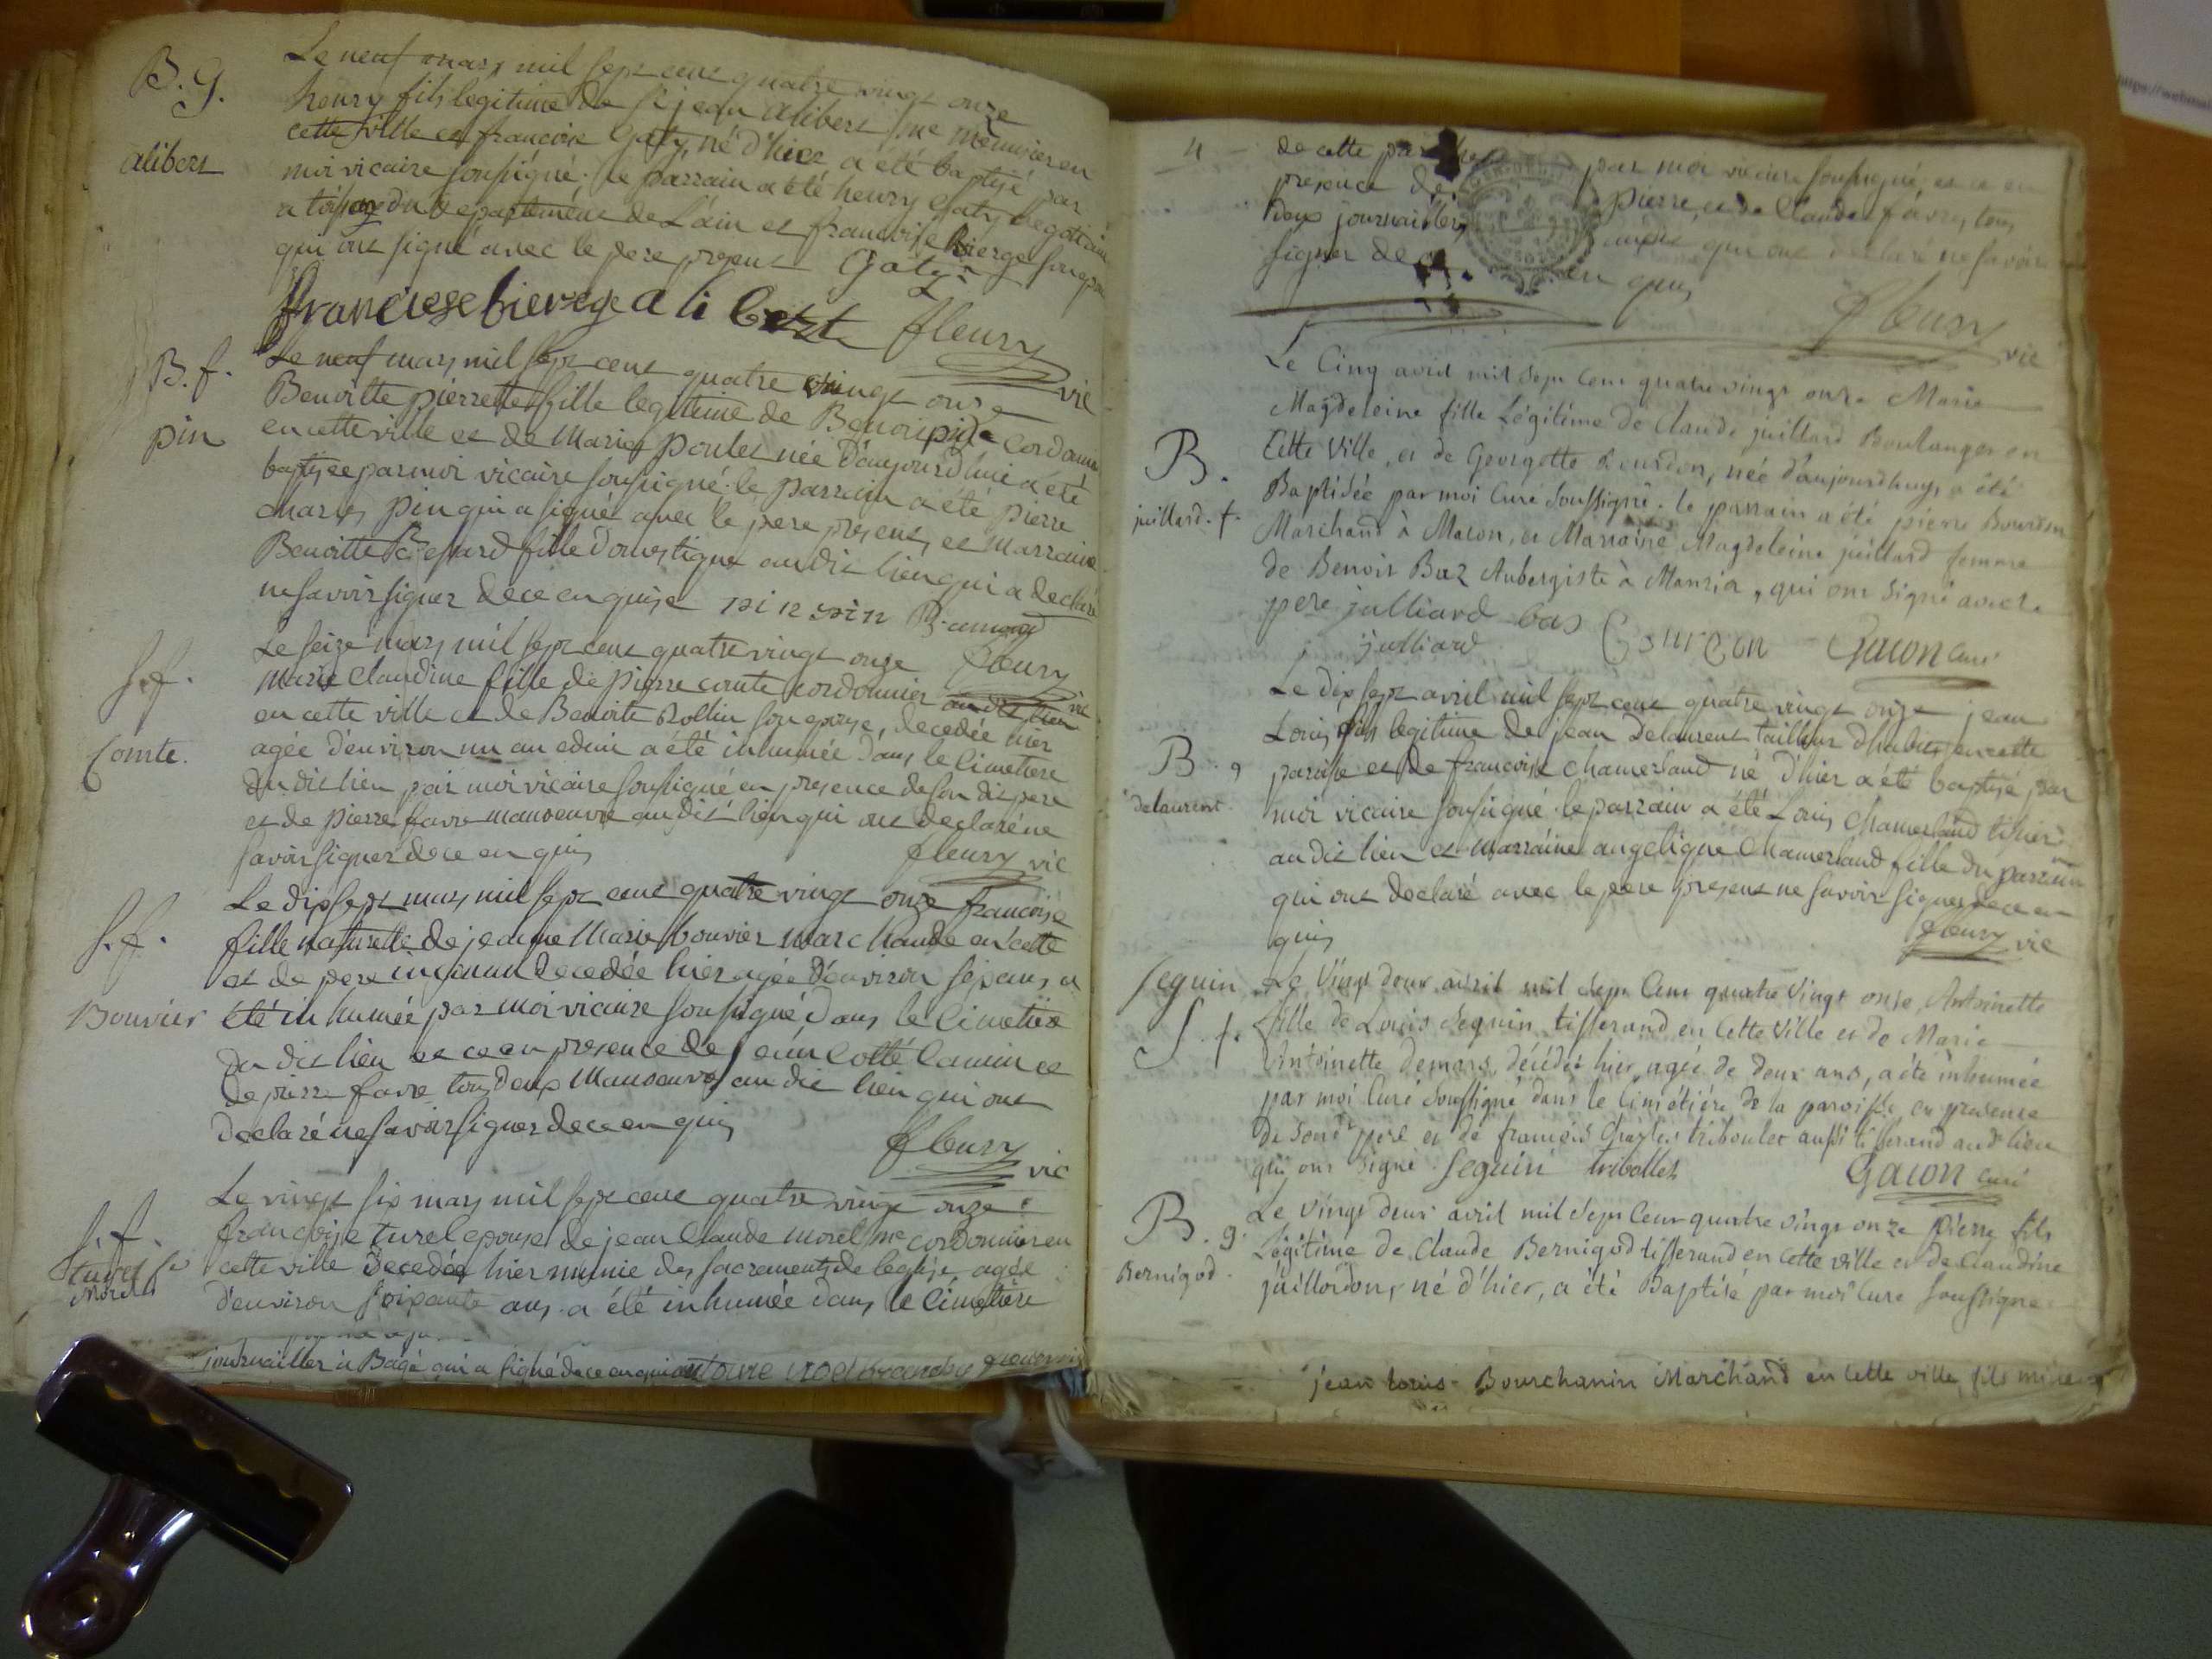 B. g.
alibert
Le neuf mars mil sept cent quatre vingt onze
henry fils légitime de Sr jean alibert me menuisier en
cette ville et francoise Gaty, né d'hier a été baptisé par
moi vicaire soussigné; le parrain a été henry Gaty negotiant
a du departement de L'ain et francoise Bierge
qui ont signé avec le pere present Gaty
franciese bierge alibert fleury
vic
B. f.
pin
Le neuf mars mil sept cent quatre vingt onze
Benoitte pierrette fille legitime de Benoit pin cordonnier
en cette ville et de Marie poulet née d'aujourd'hui a été
baptisée par moi vicaire soussigné. le parrain a été pierre
charles pin qui a signé avec le pere present, et marraine
Benoitte fille domestique au dit lieu qui a declaré
ne savoir signer de ce enquise pin pin
fleury
vic
S. f.
Comte.
Le seize mars mil sept cent quatre vingt onze
Marie Claudine fille de pierre comte cordonnier au dit lieu
en cette ville et de Benoite Rollin son epouse, decedée hier
agée d'environ un an edemi a été inhumée dans le Cimetiere
du dit lieu par moi vicaire soussigné en presence de son dit pere
et de pierre favre manoeuvre au dit lieu qui ont declaré ne
savoir signer de ce enquis fleury vic
S. f.
Bouvier
Le dix sept mars mil sept cent quatre vingt onze francoise
fille naturelle de jeanne Marie bouvier marchande en cette
et de pere inconnu decedée hier agée d'environ sept ans, a
été inhumée par moi vicaire soussigné, dans le Cimetiere
du dit lieu et ce en presence de Cotté Camin et
de pierre favre tous deux Manoeuvres au dit lieu qui ont
declaré ne savoir signer de ce enquis
fleury
vic
S. f.
turel fe
Morel
Le vingt six mars mil sept cent quatre vingt onze
francoise turel epouse de jean Claude morel me cordonnier en
cette ville decedée hier munie des sacrements de leglise agée
d'environ soixante ans a été inhumée dans le Cimetiere
journailler à Bagé qui a signé de ce enquis antoine
4
de cette par moi vicaire soussigné, et ce en
presence de pierre, et de Claude favre, tous
deux journailler qui ont declaré ne savoir
signer de enquis
fleury
vic
B.
juillard. f.
Le Cinq avril mil sept cent quatre vingt onze Marie
Magdeleine fille Légitime de Claude juillard Boulanger en
Cette Ville, et de Georgette Bourdon, née d'aujourdhuy, a été
Baptisée par moi Curé Soussigné. le parrain a été pierre Bourdon
Marchand à Macon, et Marraine Magdeleine juillard femme
de Benoit Buz Aubergiste à Manzia, qui ont signé avec le
pere julliard bas Bourdon Gacon curé
j julliard
B. g
delaurent.
Le dix sept avril mil sept cent quatre vingt onze jean
Louis fils legitime de jean Delaurent tailleur d'habits en cette
paroisse et de francoise Chamerland né d'hier a été baptisé par
moi vicaire soussigné. le parrain a été Louis Chamerland
au dit lieu et marraine angelique Chamerland fille du parrain
qui ont declaré avec le pere present ne savoir signer de ce en
quis fleury vic
Seguin
S. f.
Le Vingt deux avril mil sept Cent quatre Vingt onze, Antoinette
fille de Louis Seguin tisserand en Cette Ville et de Marie
Antoinette Demars, décédée hier, agée de deux ans, a été inhumée
par moi Curé Soussigné dans le Cimétiére de la paroisse, en presence
de Sond. pere et de francois Charles triboulet aussi tisserand aud. lieu
qui ont signé. Seguin tribollet Gacon curé
B. g.
Bernigod.
Le Vingt deux avril mil sept Cent quatre vingt onze pierre fils
Légitime de Claude Bernigod tisserand en Cette ville et de Claudine
né d'hier, a été Baptisé par moi Curé Soussigné
jean Louis Bourchanin Marchand en Cette ville, fils mineur